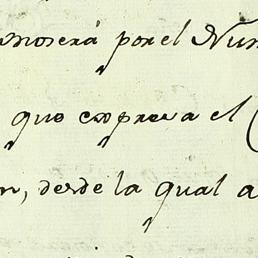 mosera por el Num
que expresa el
n, desde la qual a